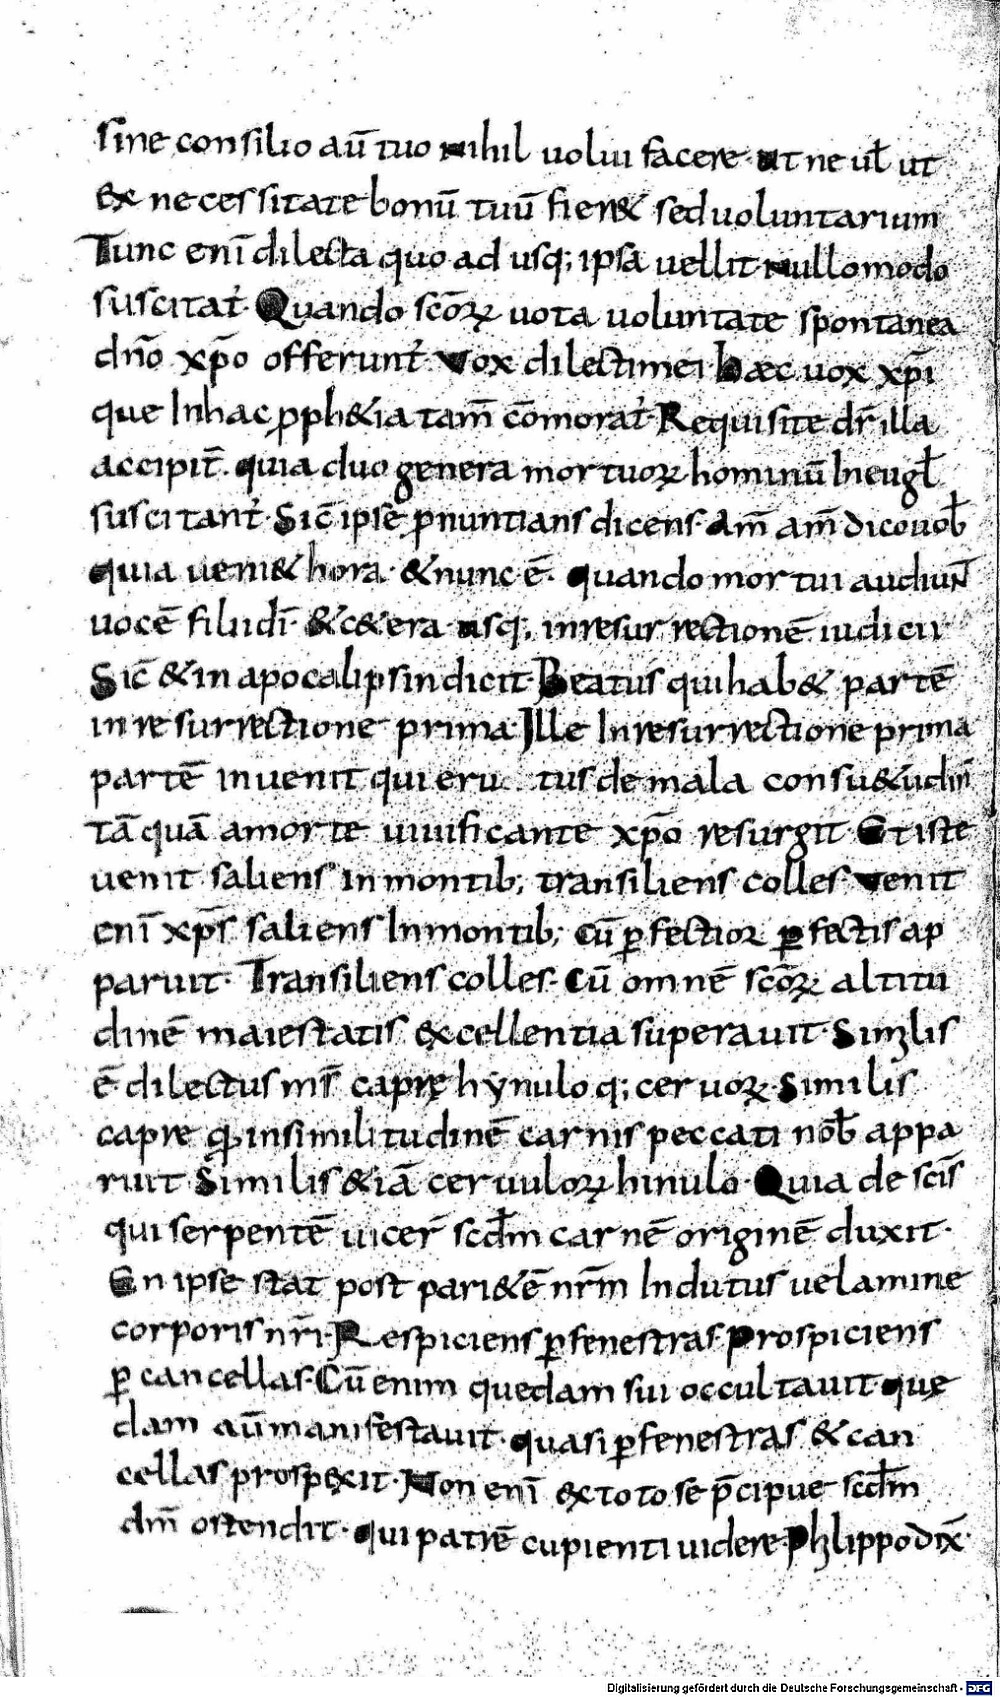 sine consilio aū tuo nihil uolui facere· ut ne ul̄ ut
ex necessitate bonū tuū fier& sed uoluntarium
Tunc enī dilecta quo ad usq; ipsa uellit nullo modo
suscitat᷑· Quando sc̄oꝝ uota uoluntate spontanea
dn̄o xp̄o offerunt᷑· Vox dilecti mei· haec uox xp̄i
que In hac ꝓph&ia tam̄ cōmorat᷑· Requisite dr̄ illa
accipit̄· quia duo genera mortuoꝝ hominū In eugl̄
suscitant᷑· Sic̄ ipse p̄nuntians dicens· Am̄ am̄ dico uob̄
quia ueni& hora· &nunc ē· quando mortui audiuN̄
uocē filii dī· &c&era usq; in resurrectionē iudicii
Sic̄ & in apocalipsin dicit· Beatus qui hab& partē
in resurrectione prima· Ille In resurrectione prima
partē inuenit qui eru tus de mala consu&udin̄
tā quā a morte uiuificante xp̄o resurgit· Et iste
uenit saliens in montib; transiliens colles· Venit
enī xp̄s saliens In montib; cū ꝑfectioꝝ ꝑfectis ap
paruit· Transiliens colles· Cū omnē sc̄oꝝ altitu
dinē maiestatis excellentia superauit· Similis
ē dilectus ms̄ caprę hynuloq; ceruoꝝ· Similis
capre qͥ in similitudinē carnis peccati nob̄ appa
ruit· Similis &iā ceruuloꝝ hinulo· Quia de sc̄is
qui serpentē uicer̄ scd̄m carnē originē duxit·
En ipse stat post pari&ē nr̄m Indutus uelamine
corporis nr̄i· Respiciens ꝑ fenestras· Prospiciens
ꝑ cancellas· Cū enim quedam sui occultauit quę
dam aū manifestauit· quasi ꝑ fenestras & can
cellas prospexit· Non enī ex toto se p̄cipue scd̄m
dm̄ ostendit· qui patrē cupienti uidere· Philippo dix̄·
Digitalisierung gefördert durch die Deutsche Forschungsgemeinschaft - DFG